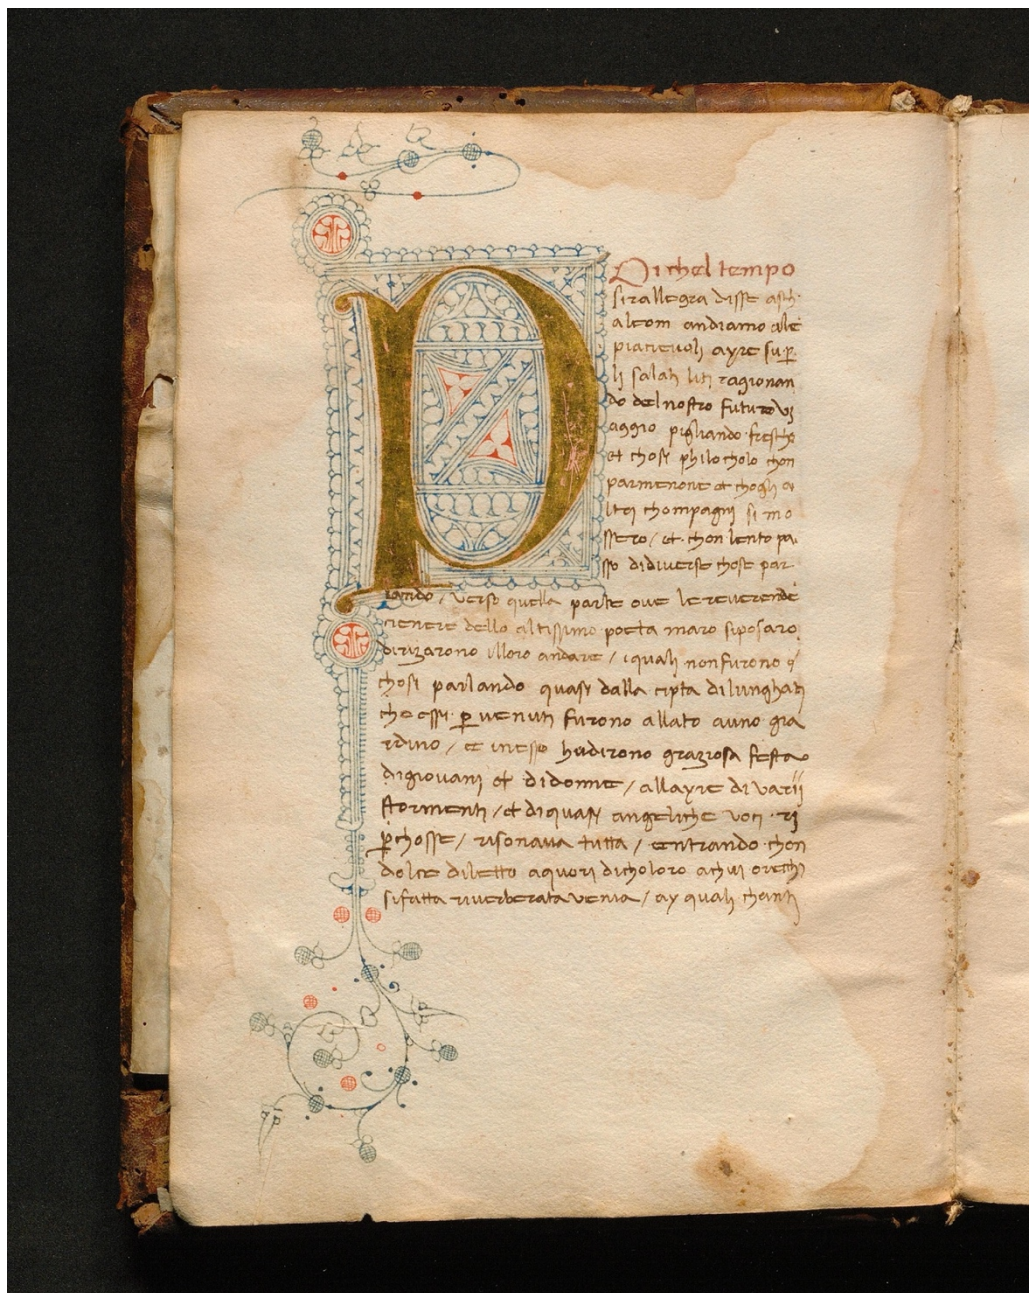 P
Oi chel tempo
si rallegra disse asch
aleom andiamo ale
piacievoli ayre su p̱
li salati liti ragionan
do del nostro futuro vi
aggio pigliando frescho
et chosi philocholo chon
parmenone et chogli a
ltri chompagni si mo
ssero / et chon lento pa
sso didiverse chose par
lando / verso quella parte ove le reverende
cienere dello altissimo poeta maro siposaro
dirizarono illoro andare / iquali nonfurono
chosi parlando quasi dalla cipta dilunghati
che essi p̱ venuti furono allato auno gia
rdino / et inesso hudirono graziosa festa
digiovani et didonne / allayre di varii
stormenti / et di quasi angeliche voci ri
p̱chosse / risonava tutta / entrando chon
dolce diletto aquori dicholoro achui orechi
sifatta riverberata venia / ay quali chanti